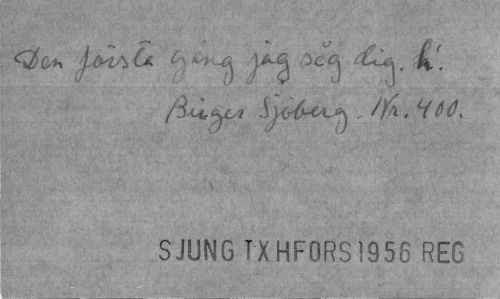 Den första gång jag såg dig. h!.
Birger Sjöberg. Nr. 400.
SJUNG TX HFORS 1956 REG